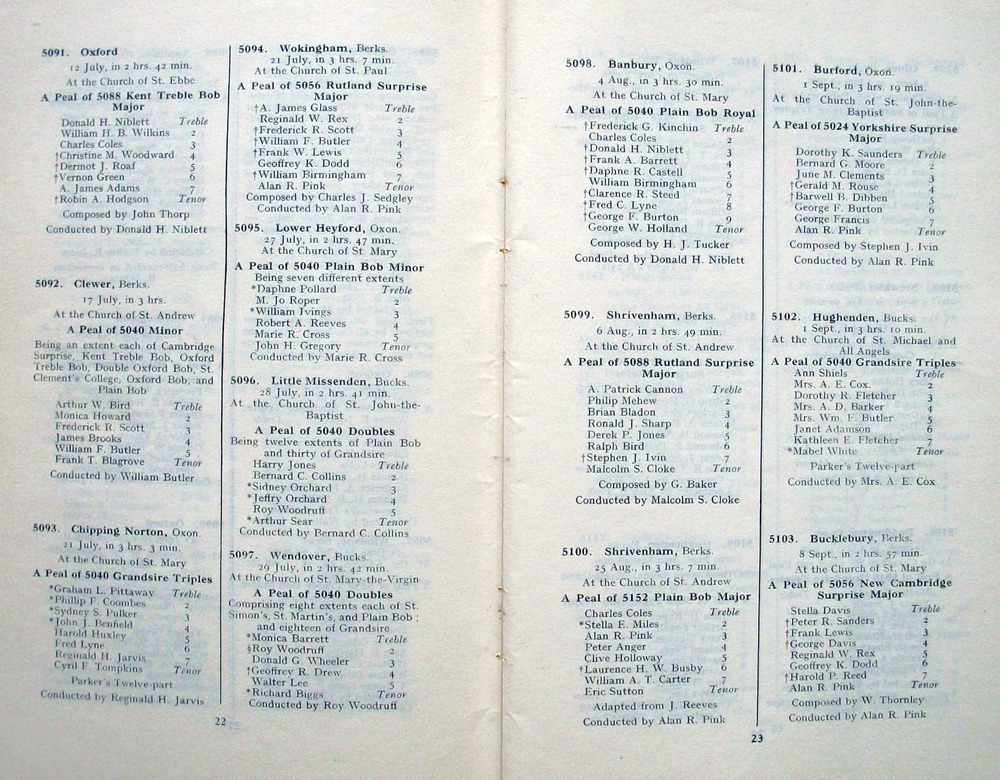 5091. Oxford
12 July, in 2 hrs. 42 min.
At the Church of St. Ebbe
A Peal of 5088 Kent Treble Bob
Major
Donald H. Niblett Treble
William H. B. Wilkins 2
Charles Coles 3
†Christine M. Woodward 4
†Dermot J. Roaf 5
†Vernon Green 6
A. James Adams 7
†Robin A. Hodgson Tenor
Composed by John Thorp
Conducted by Donald H. Niblett
5092. Clewer, Berks.
17 July, in 3 hrs.
At the Church of St. Andrew
A Peal of 5040 Minor
Being an extent each of Cambridge
Surprise, Kent Treble Bob, Oxford
Treble Bob, Double Oxford Bob, St.
Clement's College, Oxford Bob, and
Plain Bob
Arthur W. Bird Treble
Monica Howard 2
Frederick R. Scott 3
James Brooks 4
William F. Butler 5
Frank T. Blagrove Tenor
Conducted by William Butler
5093. Chipping Norton, Oxon.
21 July, in 3 hrs. 3 min.
At the Church of St. Mary
A Peal of 5040 Grandsire Triples
*Graham L. Pittaway Treble
*Phillip F. Coombes 2
*Sydney S. Pulker 3
*John J. Benfield 4
Harold Huxley 5
Fred Lyne 6
Reginald H. Jarvis 7
Cyril F. Tompkins Tenor
Parker's Twelve-part
Conducted by Reginald H. Jarvis
22
5094. Wokingham, Berks.
21 July, in 3 hrs. 7 min.
At the Church of St. Paul
A Peal of 5056 Rutland Surprise
Major
†A. James Glass Treble
Reginald W. Rex 2
†Frederick R. Scott 3
†William F. Butler 4
†Frank W. Lewis 5
Geoffrey K. Dodd 6
†William Birmingham 7
Alan R. Pink Tenor
Composed by Charles J. Sedgley
Conducted by Alan R. Pink
5095. Lower Heyford, Oxon.
27 July, in 2 hrs. 47 min.
At the Church of St. Mary
A Peal of 5040 Plain Bob Minor
Being seven different extents
*Daphne Pollard Treble
M. Jo Roper 2
*William Ivings 3
Robert A. Reeves 4
Marie R. Cross 5
John H. Gregory Tenor
Conducted by Marie R. Cross
5096. Little Missenden, Bucks.
28 July, in 2 hrs. 41 min.
At the Church of St. John-the-
Baptist
A Peal of 5040 Doubles
Being twelve extents of Plain Bob
and thirty of Grandsire
Harry Jones Treble
Bernard C. Collins 2
*Sidney Orchard 3
*Jeffry Orchard 4
Roy Woodruff 5
*Arthur Sear Tenor
Conducted by Bernard C. Collins
5097. Wendover, Bucks.
29 July, in 2 hrs. 42 min.
At the Church of St. Mary-the-Virgin
A Peal of 5040 Doubles
Comprising eight extents each of St.
Simon's, St. Martin's, and Plain Bob ;
and eighteen of Grandsire
*Monica Barrett Treble
§Roy Woodruff 2
Donald G. Wheeler 3
†Geoffrey R. Drew 4
Walter Lee 5
*Richard Biggs Tenor
Conducted by Roy Woodruff
5098. Banbury, Oxon.
4 Aug., in 3 hrs. 30 min.
At the Church of St. Mary
A Peal of 5040 Plain Bob Royal
†Frederick G. Kinchin Treble
Charles Coles 2
†Donald H. Niblett 3
†Frank A. Barrett 4
†Daphne R. Castell 5
William Birmingham 6
†Clarence R. Steed 7
†Fred C. Lyne 8
†George F. Burton 9
George W. Holland Tenor
Composed by H. J. Tucker
Conducted by Donald H. Niblett
5099. Shrivenham, Berks.
6 Aug., in 2 hrs. 49 min.
At the Church of St. Andrew
A Peal of 5088 Rutland Surprise
Major
A. Patrick Cannon Treble
Philip Mehew 2
Brian Bladon 3
Ronald J. Sharp 4
Derek P. Jones 5
Ralph Bird 6
†Stephen J. Ivin 7
Malcolm S. Cloke Tenor
Composed by G. Baker
Conducted by Malcolm S. Cloke
5100. Shrivenham, Berks.
25 Aug., in 3 hrs. 7 min.
At the Church of St. Andrew
A Peal of 5152 Plain Bob Major
Charles Coles Treble
*Stella E. Miles 2
Alan R. Pink 3
Peter Anger 4
Clive Holloway 5
†Laurence H. W. Busby 6
William A. T. Carter 7
Eric Sutton Tenor
Adapted from J. Reeves
Conducted by Alan R. Pink
23
5101. Burford, Oxon.
1 Sept., in 3 hrs. 19 min.
At the Church of St. John-the-
Baptist
A Peal of 5024 Yorkshire Surprise
Major
Dorothy K. Saunders Treble
Bernard G. Moore 2
June M. Clements 3
†Gerald M. Rouse 4
†Barwell B. Dibben 5
George F. Burton 6
George Francis 7
Alan R. Pink Tenor
Composed by Stephen J. Ivin
Conducted by Alan R. Pink
5102. Hughenden, Bucks.
1 Sept., in 3 hrs. 10 min.
At the Church of St. Michael and
All Angels
A Peal of 5040 Grandsire Triples
Ann Shiels Treble
Mrs. A. E. Cox. 2
Dorothy R. Fletcher 3
Mrs. A. D. Barker 4
Mrs. Wm. F. Butler 5
Janet Adamson 6
Kathleen E. Fletcher 7
*Mabel White Tenor
Parker's Twelve-part
Conducted by Mrs. A. E. Cox
5103. Bucklebury, Berks.
8 Sept., in 2 hrs. 57 min.
At the Church of St. Mary
A Peal of 5056 New Cambridge
Surprise Major
Stella Davis Treble
†Peter R. Sanders 2
†Frank Lewis 3
†George Davis 4
Reginald W. Rex 5
Geoffrey K. Dodd 6
†Harold P. Reed 7
Alan R. Pink Tenor
Composed by W. Thornley
Conducted by Alan R. Pink